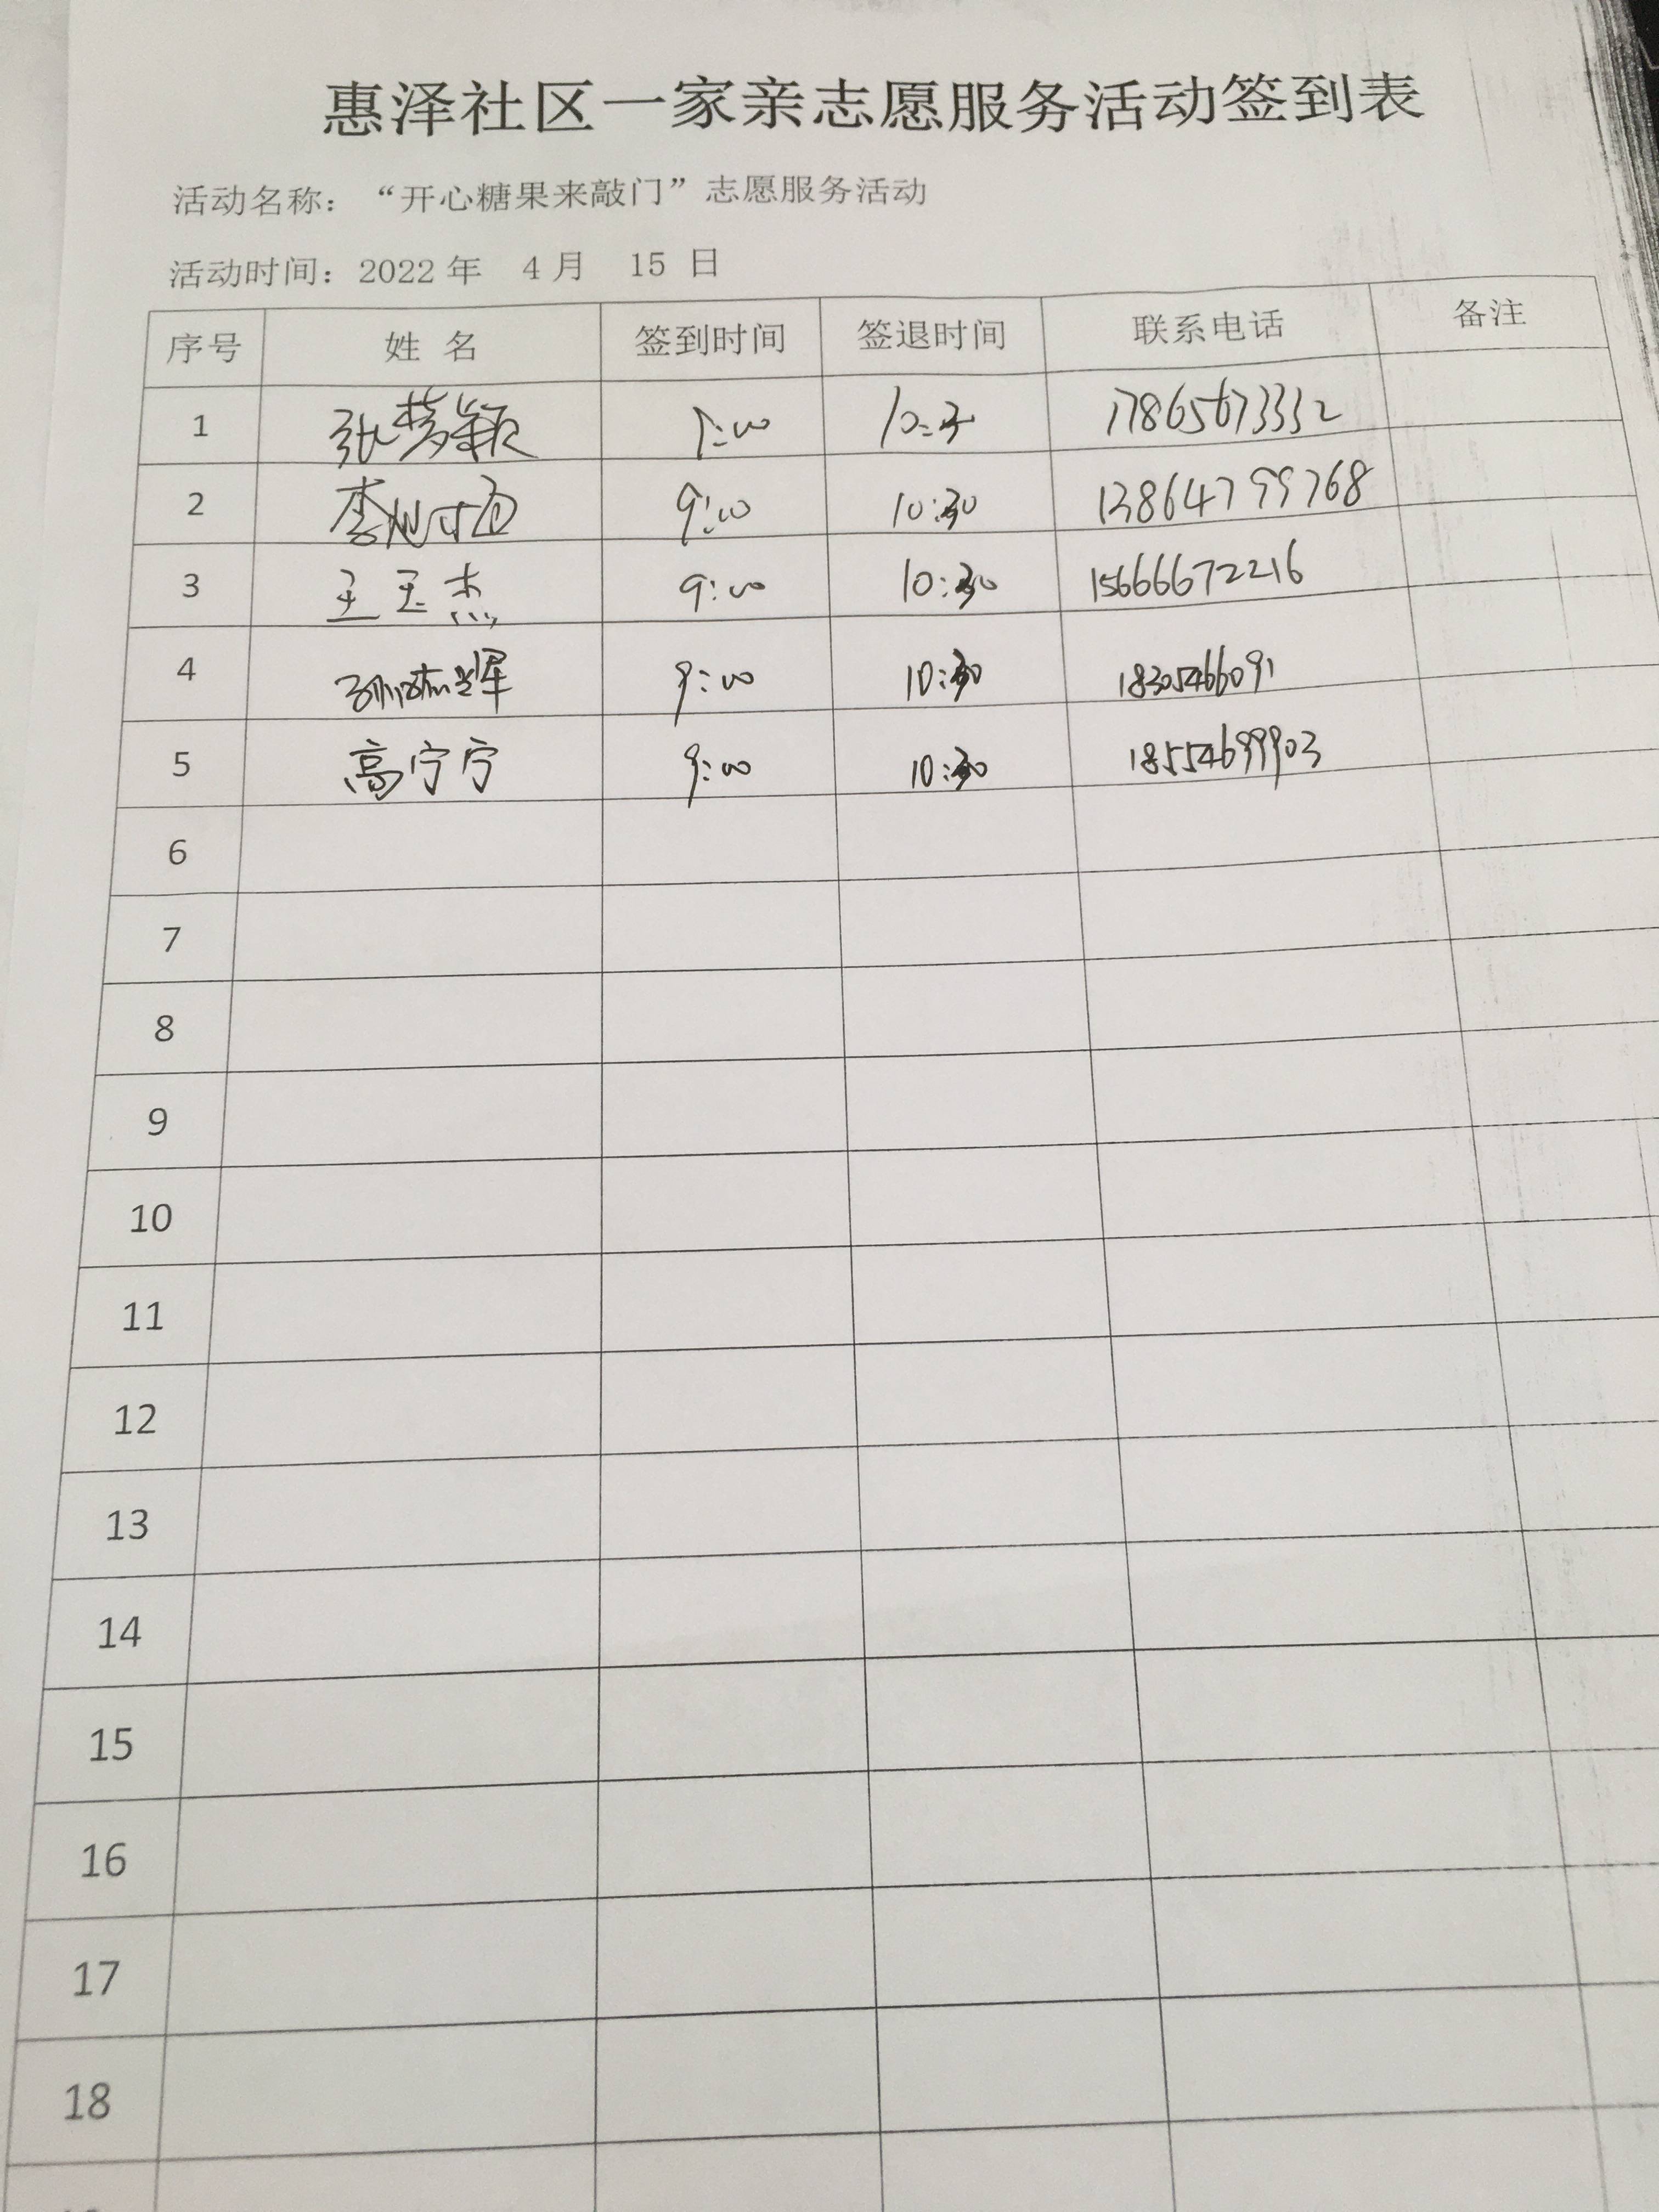 惠泽社区一家亲志愿服务活动签到表
活动名称：“开心糖果来敲门”志愿服务活动
活动时间：2022年 4月 15日
序号 姓 名 签到时间 签退时间 联系电话 备注
1 张梦颖 9:00 17865673332
2 9:00 10:30 13864799768
3 王玉杰 9:00 10:30 15666672216
4 9:00 10:30 18305466091
5 高宁宁 9:00 10:30 18554699903
6
7
8
9
10
11
12
13
14
15
16
17
18